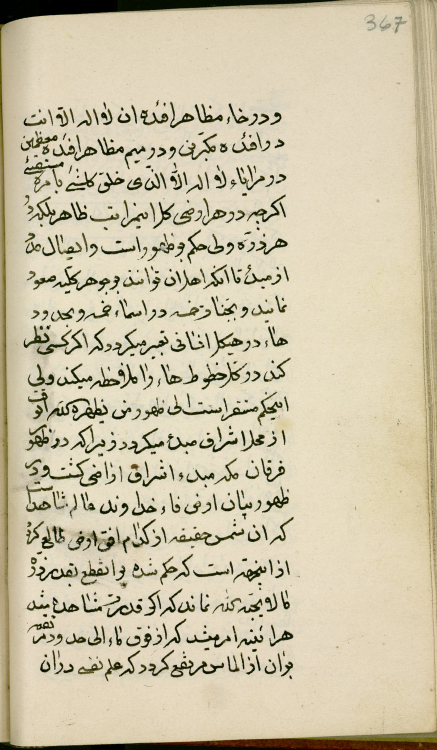 367
و در خاء مظاهر افئده ان لا اله الا انت
در افئده مکبرین و در میم مظاهر افئده معظمین
در مرایاء لا اله الا الذی خلق کلشیئ بامره
اکرچه در هر ارضی کل این مراتب ظاهر بلکه در
هر ذره ولی حکم بر ظهور است و اتصال
از مبدء تا انکه اهل ان توانند بجوهر کلیه صعود
نمایند و بجنات خمسه در اسماء خمسه و بحدود
هاء در هیکل انسانی تعبیر میکردد که اکر کسی نظر
کند در کل خطوط هاء را ملاحظه میکند ولی
این حکم مستقر است الی ظهور من یظهره الله
از محل اشراق مبدء میکردد زیرا که در ظهور
فرقان مکه مبدء اشراق ارضی کشت و در
ظهور بیان ارض فاء خداوند عالم شاهد است
که ان شمس حقیقه از کدام افق ارض طالع کردد
از اینجهة است که حکم شده
تا لا یحبه الله نماند که اکر قدرت مشاهده میشد
هر اینه امر میشد که از فوق تاء الی حد و در نقطه
بر ان از الماس مرتفع کردد که علم نفسی در ان